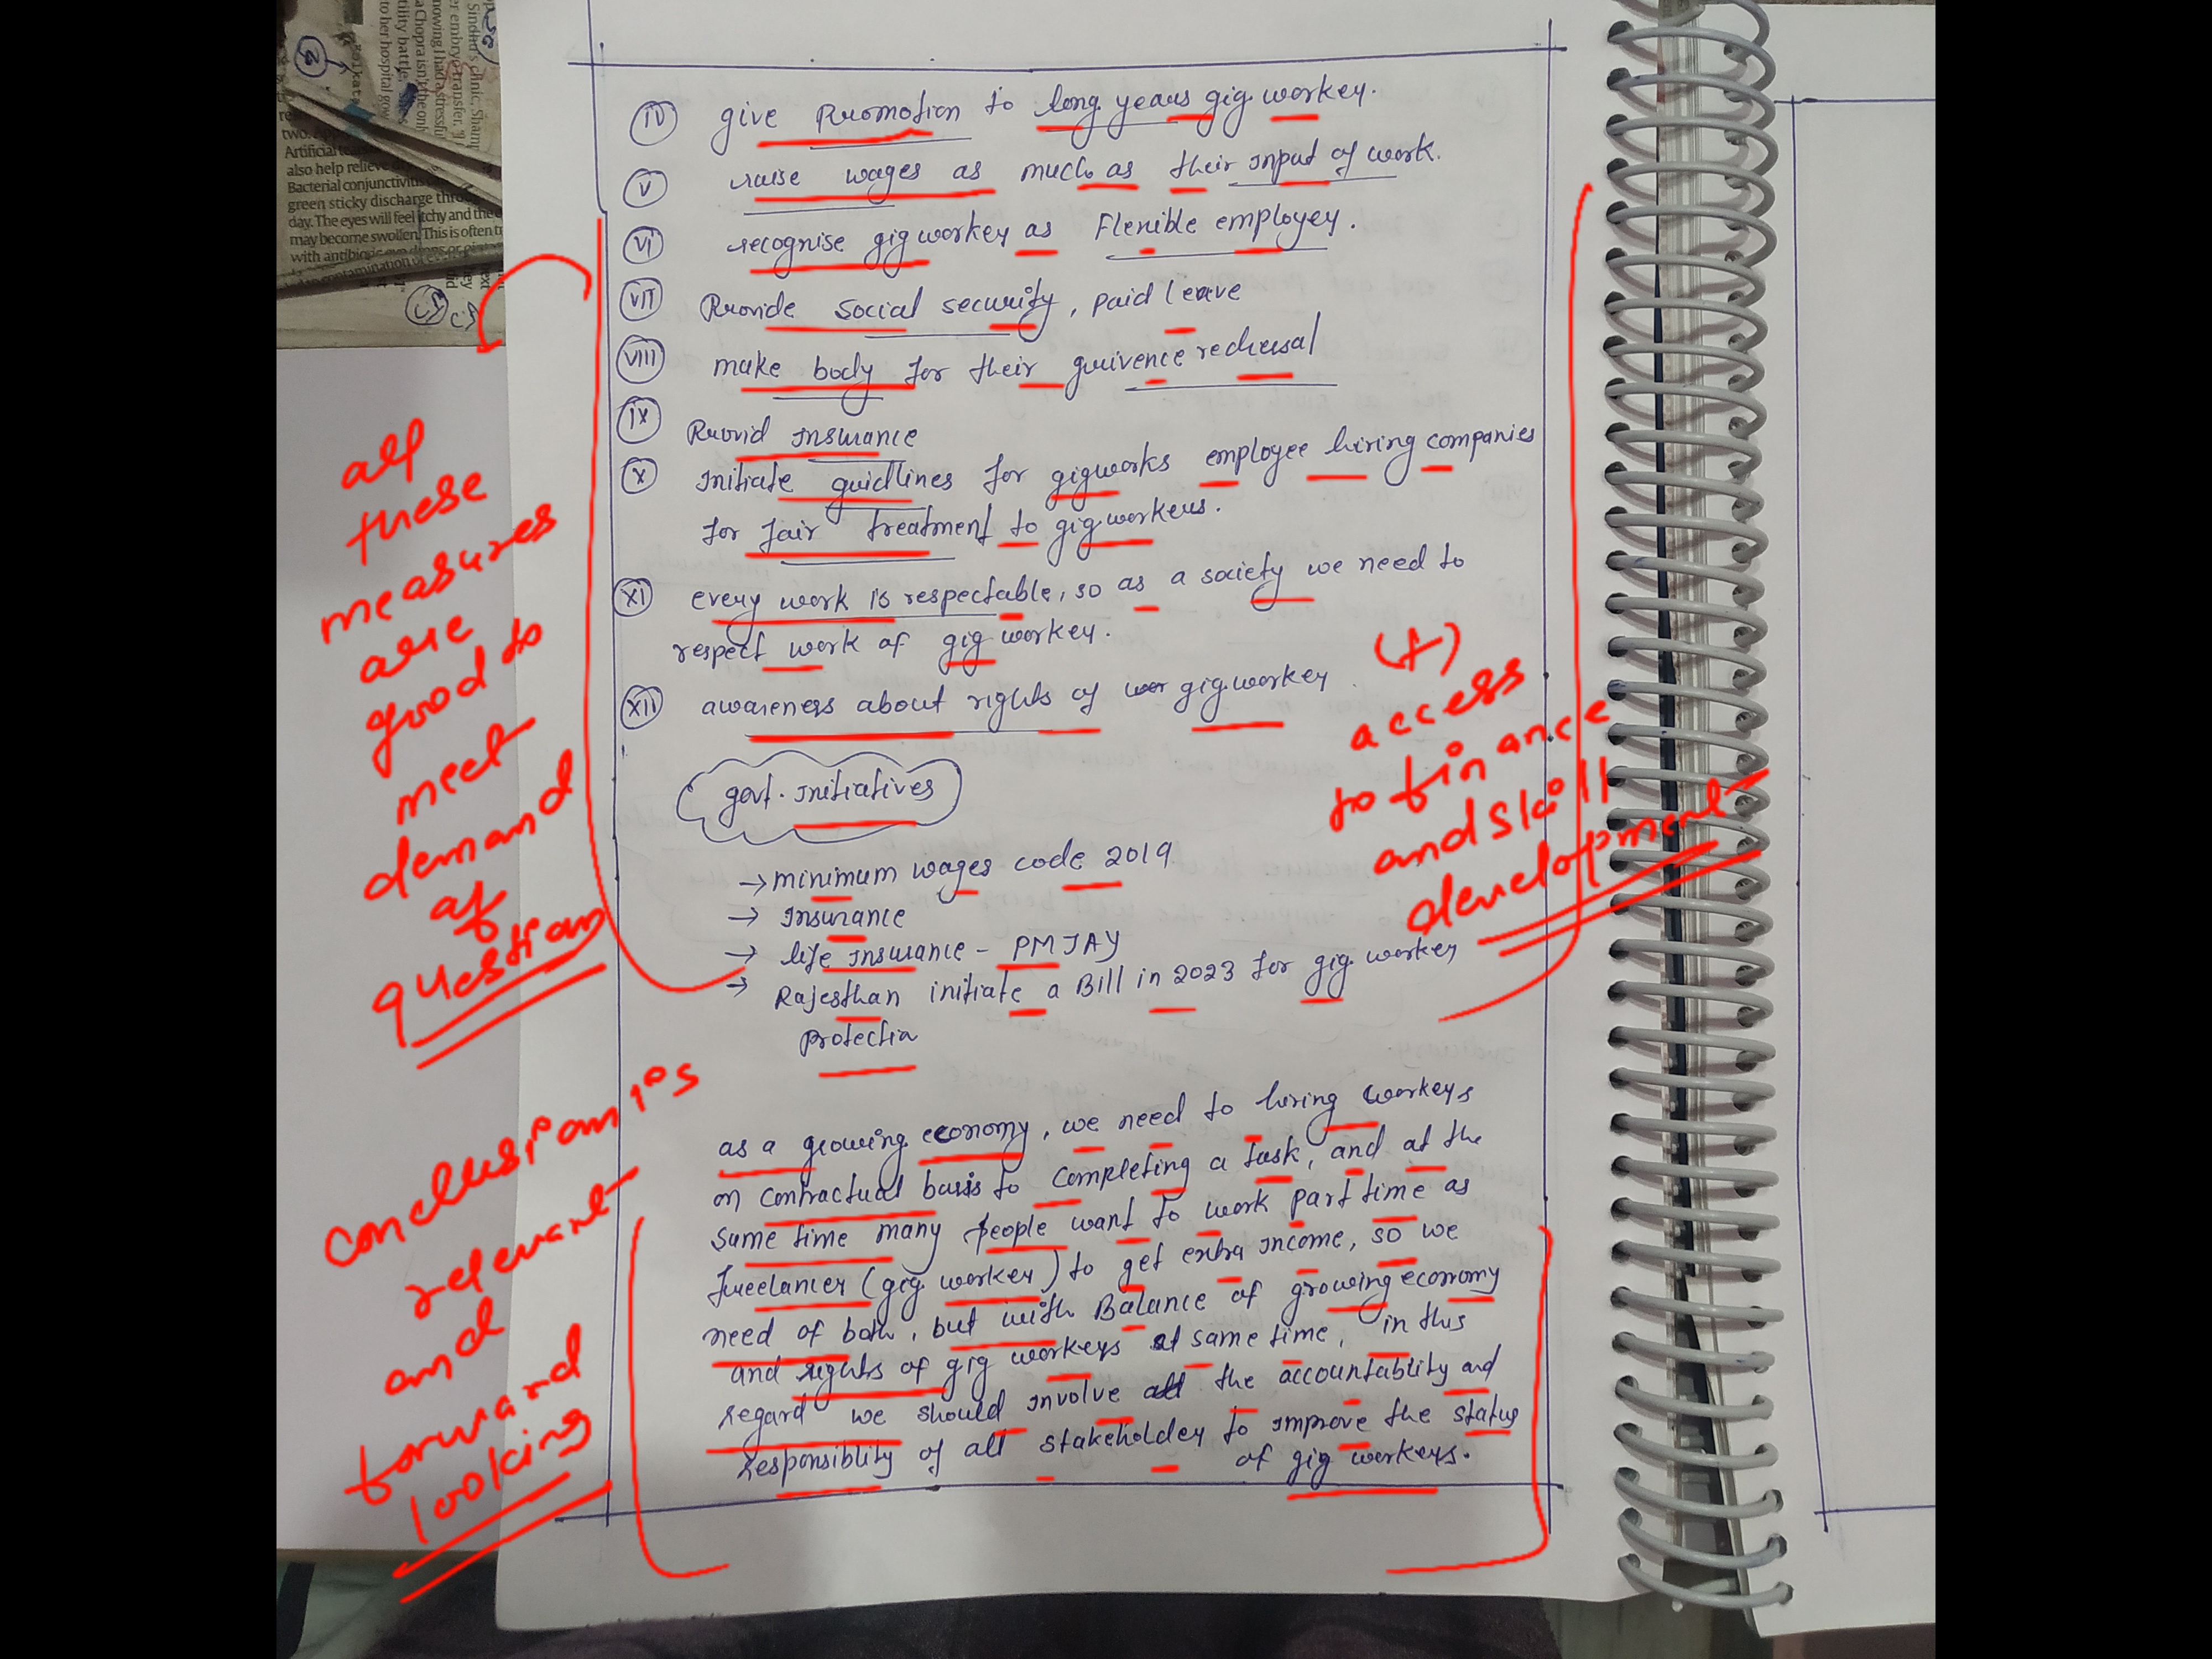 (iv) give Promotion to long years gig worker.
(v) raise wages as much as their input of work.
(vi) recognise gig worker as Flexible employey.
(vii) Provide social security, paid leave
(viii) make body for their grivence redressal
(ix) Provid insurance
(x) initiate guidlines for gigworks employee hiring companies
for fair treatment to gig workers.
(xi) every work is respectable, so as a society we need to
respect work of gig worker.
(xii) awareness about rights of gig worker
govt. initiatives
→ minimum wages code 2019
→ Insurance
→ life insurance - PMJAY
→ Rajesthan initiate a Bill in 2023 for gig worker
protectin
as a growing economy, we need to hiring workers
on contractual basis to completing a task, and at the
same time many people want to work part time as
freelancer (gig worker) to get extra income, so we
need of both, but with Balance of growing economy
and rights of gig workers at same time, in this
regard we should involve all the accountablity and
responsiblity of all stakeholder to improve the status
of gig workers.
all
these
measures
are
good to
meet
demand
of
question
(+)
access
to finance
and skill
development
conclusion is
relevant
and
forward
looking
Kolkata
two.
Artificial
also help relieve
Bacterial conjunctivitis
green sticky discharge
day. The eyes will feel itchy and the
may become swollen. This is often